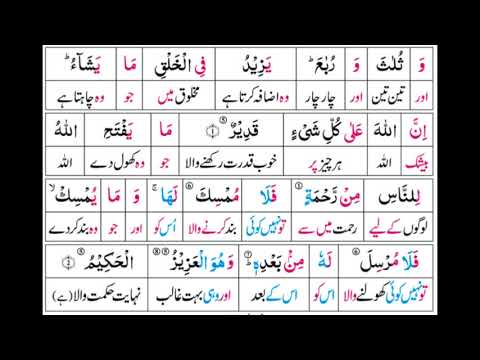 وَ ثُلٰثَ وَ رُبٰعَ ؕ يَزِيْدُ فِي الْخَلْقِ مَا يَشَآءُ ؕ
اور تین تین اور چار چار وہ اضافہ کرتا ہے مخلوق میں جو وہ چاہتا ہے
اِنَّ اللّٰهَ عَلٰى كُلِّ شَيْءٍ قَدِيْرٌ ۝۱ مَا يَفْتَحِ اللّٰهُ
بیشک اللہ ہر چیز پر خوب قدرت رکھنے والا جو وہ کھول دے اللہ
لِلنَّاسِ مِنْ رَّحْمَةٍ فَلَا مُمْسِكَ لَهَا ۚ وَ مَا يُمْسِكْ ۙ
لوگوں کے لیے رحمت میں سے تو نہیں کوئی بند کرنے والا اُس کو اور جو وہ بند کر دے
فَلَا مُرْسِلَ لَهٗ مِنْۢ بَعْدِهٖ ؕ وَهُوَ الْعَزِيْزُ الْحَكِيْمُ ۝۲
تو نہیں کوئی کھولنے والا اس کو اس کے بعد اور وہی بہت غالب نہایت حکمت والا (ہے)